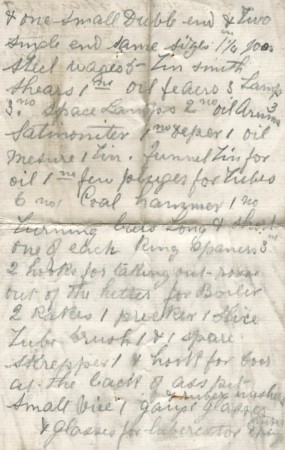 & one small Dubble end & two
single end same sizes
steel wages Tin smith
shears 1 no oil 3 Lamp
3 no space Lamps 2 no oil
Salinomiter 1 no 1 oil
mesure 1 Tin. Funnel Tin for
oil 1 no few pluges for tubes
6 no Coal hammer 1 no
Turning bars Long &
one of each Ring Spaners 3 no
2 hooks for taking out
out of the for Boiler
2 Rakes 1 pricker 1 Slice
Tube brush 1 & 1 spare
skrepper 1 & hook for
at the back of ass pit
rubber washer
small vice 1 gauge glasses
& glasses for lubercator